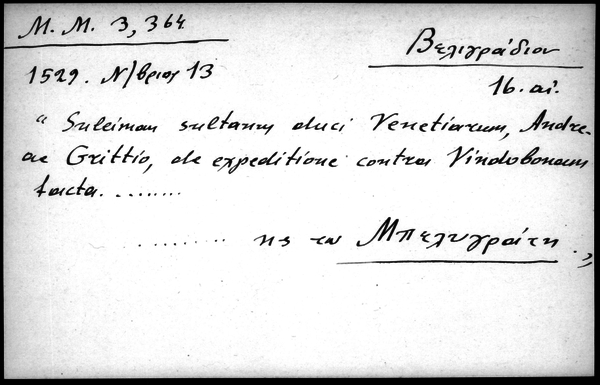 M. M. 3, 364
Βελιγράδιον
1529. Ν/βριος 13
16. αἰ.
" Suleiman sultanus duci Venetiarum, Andre-
ae Grittio, de expeditione contra Vindobonam
facta. .........
.......... ης το Μπελυγράτη . „